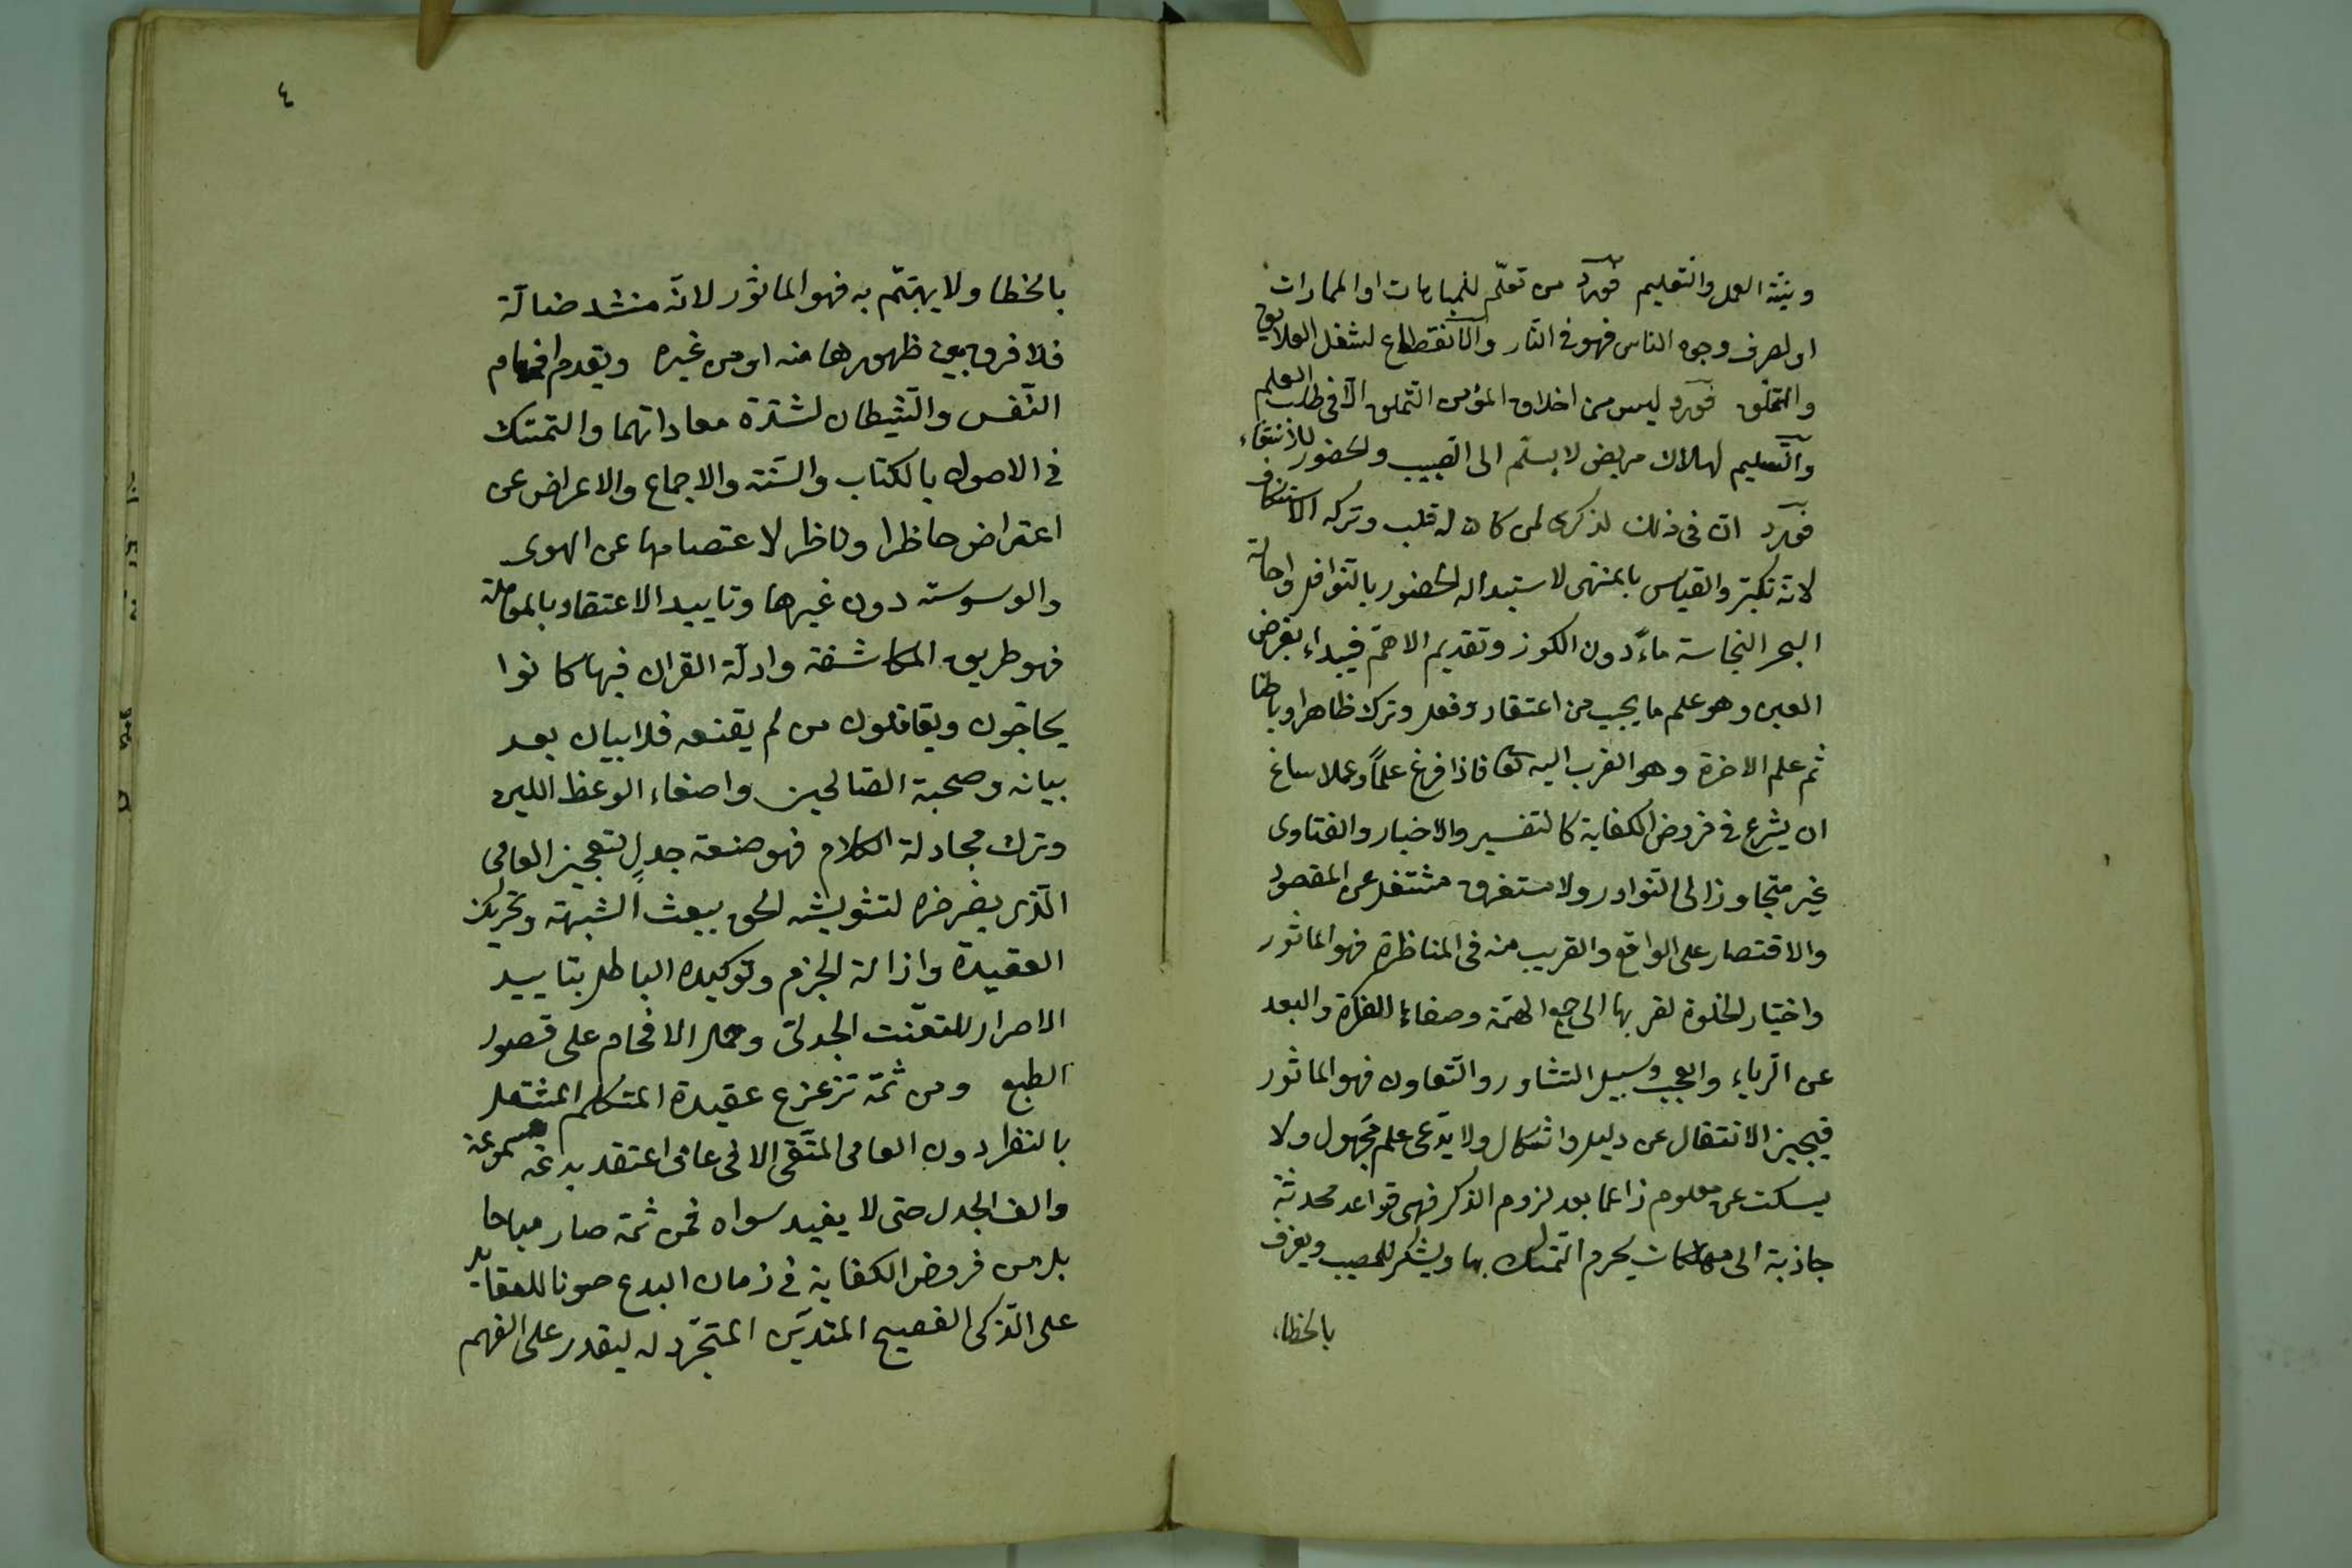 ونيّة العمل والتعليم فورد من تعلّم للمباهات او المماراة
او لصرف وجوه الناس فهو فى النّار والانقطاع لشغل العلايق
والتملّق فورد ليس من اخلاق المؤمن التملق الّا فى طلب العلم
والتسليم لهلاك مريض لا يسلّم الى الطبيب والحضور للانتفاء
فورد انّ فى ذلك لذكرى لمن كان له قلب وترك الاستنكاف
لانّه تكبّر والقياس بالمنتهى لاستبداله الحضور بالنوافل واحالة
البحر النجاسة ماءً دون الكوز وتقديم الاهمّ فيبداء بفرض
العين وهو علم ما يجب من اعتقاد وفعل وترك ظاهرا وباطنا
ثم علم الاخرة وهو القرب اليه تعا فاذا فرغ علماً وعملا ساغ
ان يشرع فى فروض الكفاية كالتفسير والاخبار والفتاوى
غير متجاوز الى النوادر ولا مستغرق مشتغل عن المقصود
والاقتصار على الواقع والقريب منه فى المناظرة فهو الماثور
واختيار الخلوة لقربها الى جمع الهمّة وصفاء الفكرة والبعد
عن الرياء والعجب وسبيل التشاور والتعاون فهو الماثور
فيجيز الانتقال عن دليل واشكال ولا يدّعى علم مجهول ولا
يسكت عن معلوم زاعما بعد لزوم الذكر فهى قواعد محدثة
جاذبة الى مهلكات يحرم التمسك بها ويشكر للمصيب ويعرف
بالخطاء
٤
بالخطا ولا يهتمّ به فهو الماثور لانّه منشد ضالّة
فلا فرق بين ظهورها منه او من غيره ويقدم افحام
النّفس والشيطان لشدّة معاداتهما والتمسّك
فى الاصول بالكتاب والسّنة والاجماع والاعراض عن
اعتراض حاظرا وناظرا لاعتصامها عن الهوى
والوسوسة دون غيرها وتاييد الاعتقاد بالمعاملة
فهو طريق المكاشفة وادلّة القران فبها كانوا
يحاجّون ويقاتلون من لم يقنعه فلا بيان بعد
بيانه وصحبة الصّالحين واصغاء الوعظ اللين
وترك مجادلة الكلام فهو صنعة جدلٍ لتعجيز العامى
الّذى يضرّه لتشويشه الحق ببعث الشبهة وتحريك
العقيدة وازالة الجزم وتوكيده الباطل بتاييد
الاصرار للتعنّت الجدلى وحمل الافحام على قصور
الطبع ومن ثمّة تزعزع عقيدة المتكلم المشتغل
بالنظر دون العامى المتّقى الا فى عامى اعتقد بدعة مسموعة
والف الجدل حتى لا يفيد سواه فمن ثمّة صار مباحا
بل من فروض الكفاية فى زمان البدع صونا للعقايد
على الذكى الفصيح المتديّن المتجرّد له ليقدر على الفهم